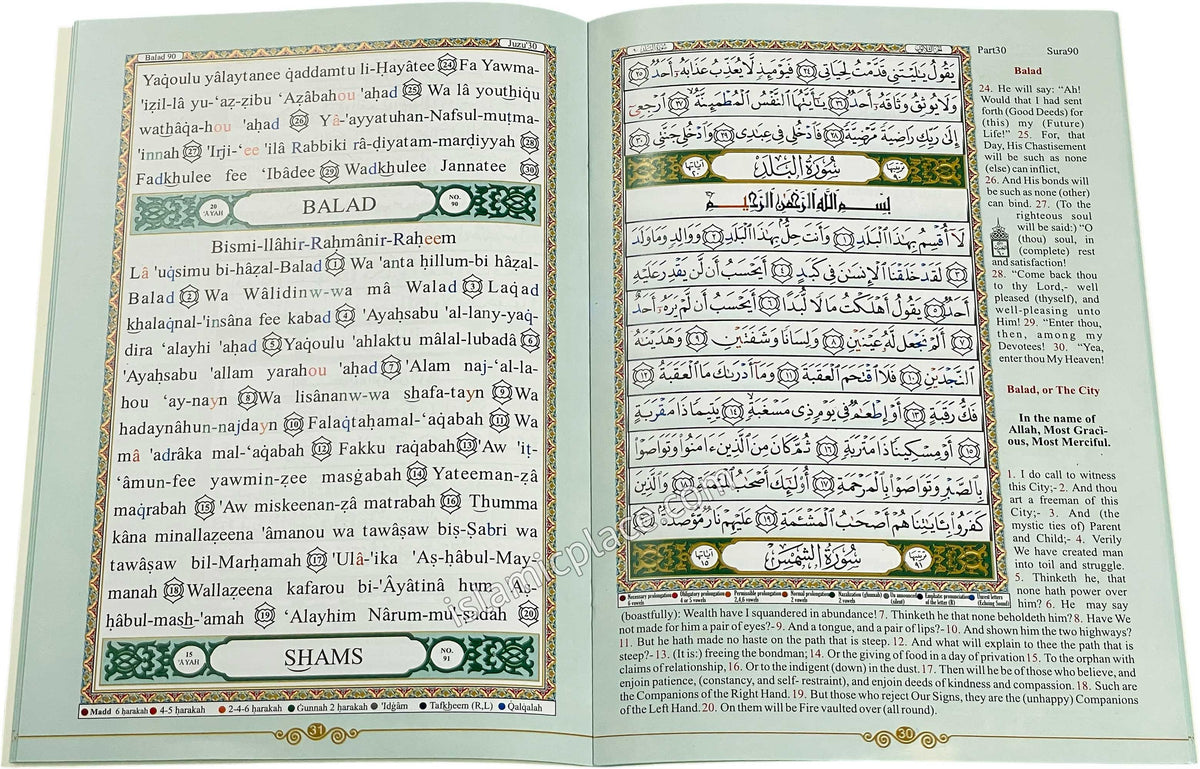 Balad 90
Juzu'30
Yaqoulu yâlaytanee qaddamtu li-Ḥayâtee (24) Fa Yawma-
'iẓil-lâ yu-‘aẓ-ẓibu ‘Aẓâbahou 'aḥad (25) Wa lâ youthiqu
wathâqa-hou 'aḥad (26) Yâ-'ayyatuhan-Nafsul-muṭma-
'innah (27) 'Irji-‘ee 'ilâ Rabbiki râ-ḍiyatam-marḍiyyah (28)
Fadkhulee fee ‘Ibâdee (29) Wadkhulee Jannatee (30)
20 'ÂYAH
BALAD
NO. 90
Bismi-llâhir-Raḥmânir-Raḥeem
Lâ 'uqsimu bi-hâẓal-Balad (1) Wa 'anta ḥillum-bi hâẓal-
Balad (2) Wa Wâlidinw-wa mâ Walad (3) Laqad
khalaqnal-'insâna fee kabad (4) 'Ayaḥsabu 'al-lany-yaq-
dira ‘alayhi 'aḥad (5) Yaqoulu 'ahlaktu mâlal-lubadâ (6)
'Ayaḥsabu 'allam yarahou 'aḥad (7) 'Alam naj-‘al-la-
hou ‘ay-nayn (8) Wa lisânanw-wa shafa-tayn (9) Wa
hadaynâhun-najdayn (10) Falaqtaḥamal-‘aqabah (11) Wa
mâ 'adrâka mal-‘aqabah (12) Fakku raqabah (13) 'Aw 'iṭ-
‘âmun-fee yawmin-ẓee masġabah (14) Yateeman-ẓâ
maqrabah (15) 'Aw miskeenan-ẓâ matrabah (16) Thumma
kâna minallaẓeena 'âmanou wa tawâṣaw biṣ-Ṣabri wa
tawâṣaw bil-Marḥamah (17) 'Ulâ-'ika 'Aṣ-ḥâbul-May-
manah (18) Wallaẓeena kafarou bi-'Âyâtinâ hum 'aṣ-
ḥâbul-mash-'amah (19) ‘Alayhim Nârum-mu'ṣadah (20)
15 'ÂYAH
SHAMS
NO. 91
Madd 6 ḥarakah 4-5 ḥarakah 2-4-6 ḥarakah Gunnah 2 ḥarakah 'Idġâm Tafkheem (R,L) Qalqalah
31
يَقُولُ يَٰلَيْتَنِي قَدَّمْتُ لِحَيَاتِي ٢٤ فَيَوْمَئِذٍ لَّا يُعَذِّبُ عَذَابَهُۥٓ أَحَدٌ ٢٥
وَلَا يُوثِقُ وَثَاقَهُۥٓ أَحَدٌ ٢٦ يَٰٓأَيَّتُهَا ٱلنَّفْسُ ٱلْمُطْمَئِنَّةُ ٢٧ ٱرْجِعِىٓ
إِلَىٰ رَبِّكِ رَاضِيَةً مَّرْضِيَّةً ٢٨ فَٱدْخُلِى فِى عِبَٰدِى ٢٩ وَٱدْخُلِى جَنَّتِى ٣٠
ترتيبها ٩٠ سُورَةُ الْبَلَدِ آياتها ٢٠
بِسْمِ ٱللَّهِ ٱلرَّحْمَٰنِ ٱلرَّحِيمِ
لَآ أُقْسِمُ بِهَٰذَا ٱلْبَلَدِ ١ وَأَنتَ حِلٌّۢ بِهَٰذَا ٱلْبَلَدِ ٢ وَوَالِدٍ وَمَا وَلَدَ
٣ لَقَدْ خَلَقْنَا ٱلْإِنسَٰنَ فِى كَبَدٍ ٤ أَيَحْسَبُ أَن لَّن يَقْدِرَ عَلَيْهِ
أَحَدٌ ٥ يَقُولُ أَهْلَكْتُ مَالًا لُّبَدًا ٦ أَيَحْسَبُ أَن لَّمْ يَرَهُۥٓ أَحَدٌ
٧ أَلَمْ نَجْعَل لَّهُۥ عَيْنَيْنِ ٨ وَلِسَانًا وَشَفَتَيْنِ ٩ وَهَدَيْنَٰهُ
ٱلنَّجْدَيْنِ ١٠ فَلَا ٱقْتَحَمَ ٱلْعَقَبَةَ ١١ وَمَآ أَدْرَىٰكَ مَا ٱلْعَقَبَةُ ١٢
فَكُّ رَقَبَةٍ ١٣ أَوْ إِطْعَٰمٌ فِى يَوْمٍ ذِى مَسْغَبَةٍ ١٤ يَتِيمًا ذَا مَقْرَبَةٍ
١٥ أَوْ مِسْكِينًا ذَا مَتْرَبَةٍ ١٦ ثُمَّ كَانَ مِنَ ٱلَّذِينَ ءَامَنُوا۟ وَتَوَاصَوْا۟
بِٱلصَّبْرِ وَتَوَاصَوْا۟ بِٱلْمَرْحَمَةِ ١٧ أُو۟لَٰٓئِكَ أَصْحَٰبُ ٱلْمَيْمَنَةِ ١٨ وَٱلَّذِينَ
كَفَرُوا۟ بِـَٔايَٰتِنَا هُمْ أَصْحَٰبُ ٱلْمَشْـَٔمَةِ ١٩ عَلَيْهِمْ نَارٌ مُّؤْصَدَةٌۢ ٢٠
ترتيبها ٩١ سُورَةُ الشَّمْسِ آياتها ١٥
Necessary prolongation 6 vowels Obligatory prolongation 4 or 5 vowels Permissible prolongation 2,4,6 vowels Normal prolongation 2 vowels Nazalization (ghunnah) 2 vowels Un announced (silent) Emphatic pronunciation of the letter (R) Unrest letters (Echoing Sound)
Part30 Sura90
Balad
24. He will say: “Ah!
Would that I had sent
forth (Good Deeds) for
(this) my (Future)
Life!” 25. For, that
Day, His Chastisement
will be such as none
(else) can inflict,
26. And His bonds will
be such as none (other)
can bind. 27. (To the
righteous soul
will be said:) “O
(thou) soul, in
(complete) rest
and satisfaction!
28. “Come back thou
to thy Lord,- well
pleased (thyself), and
well-pleasing unto
Him! 29. “Enter thou,
then, among my
Devotees! 30. “Yea,
enter thou My Heaven!
Balad, or The City
In the name of
Allah, Most Graci-
ous, Most Merciful.
1. I do call to witness
this City;- 2. And thou
art a freeman of this
City;- 3. And (the
mystic ties of) Parent
and Child;- 4. Verily
We have created man
into toil and struggle.
5. Thinketh he, that
none hath power over
him? 6. He may say
(boastfully): Wealth have I squandered in abundance! 7. Thinketh he that none beholdeth him? 8. Have We
not made for him a pair of eyes?- 9. And a tongue, and a pair of lips?- 10. And shown him the two highways?
11. But he hath made no haste on the path that is steep. 12. And what will explain to thee the path that is
steep?- 13. (It is:) freeing the bondman; 14. Or the giving of food in a day of privation 15. To the orphan with
claims of relationship, 16. Or to the indigent (down) in the dust. 17. Then will he be of those who believe, and
enjoin patience, (constancy, and self- restraint), and enjoin deeds of kindness and compassion. 18. Such are
the Companions of the Right Hand. 19. But those who reject Our Signs, they are the (unhappy) Companions
of the Left Hand. 20. On them will be Fire vaulted over (all round).
30
islamicplace.com